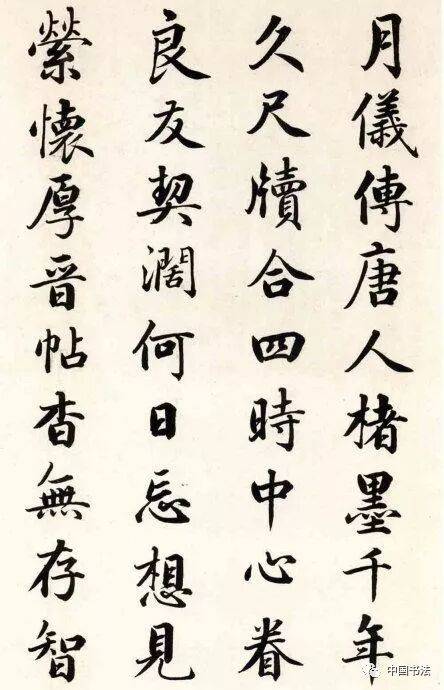 月儀傳唐人楮墨千年
久尺牘合四時中心眷
良友契濶何日忘想見
縈懷厚晋帖杳無存智
中国书法